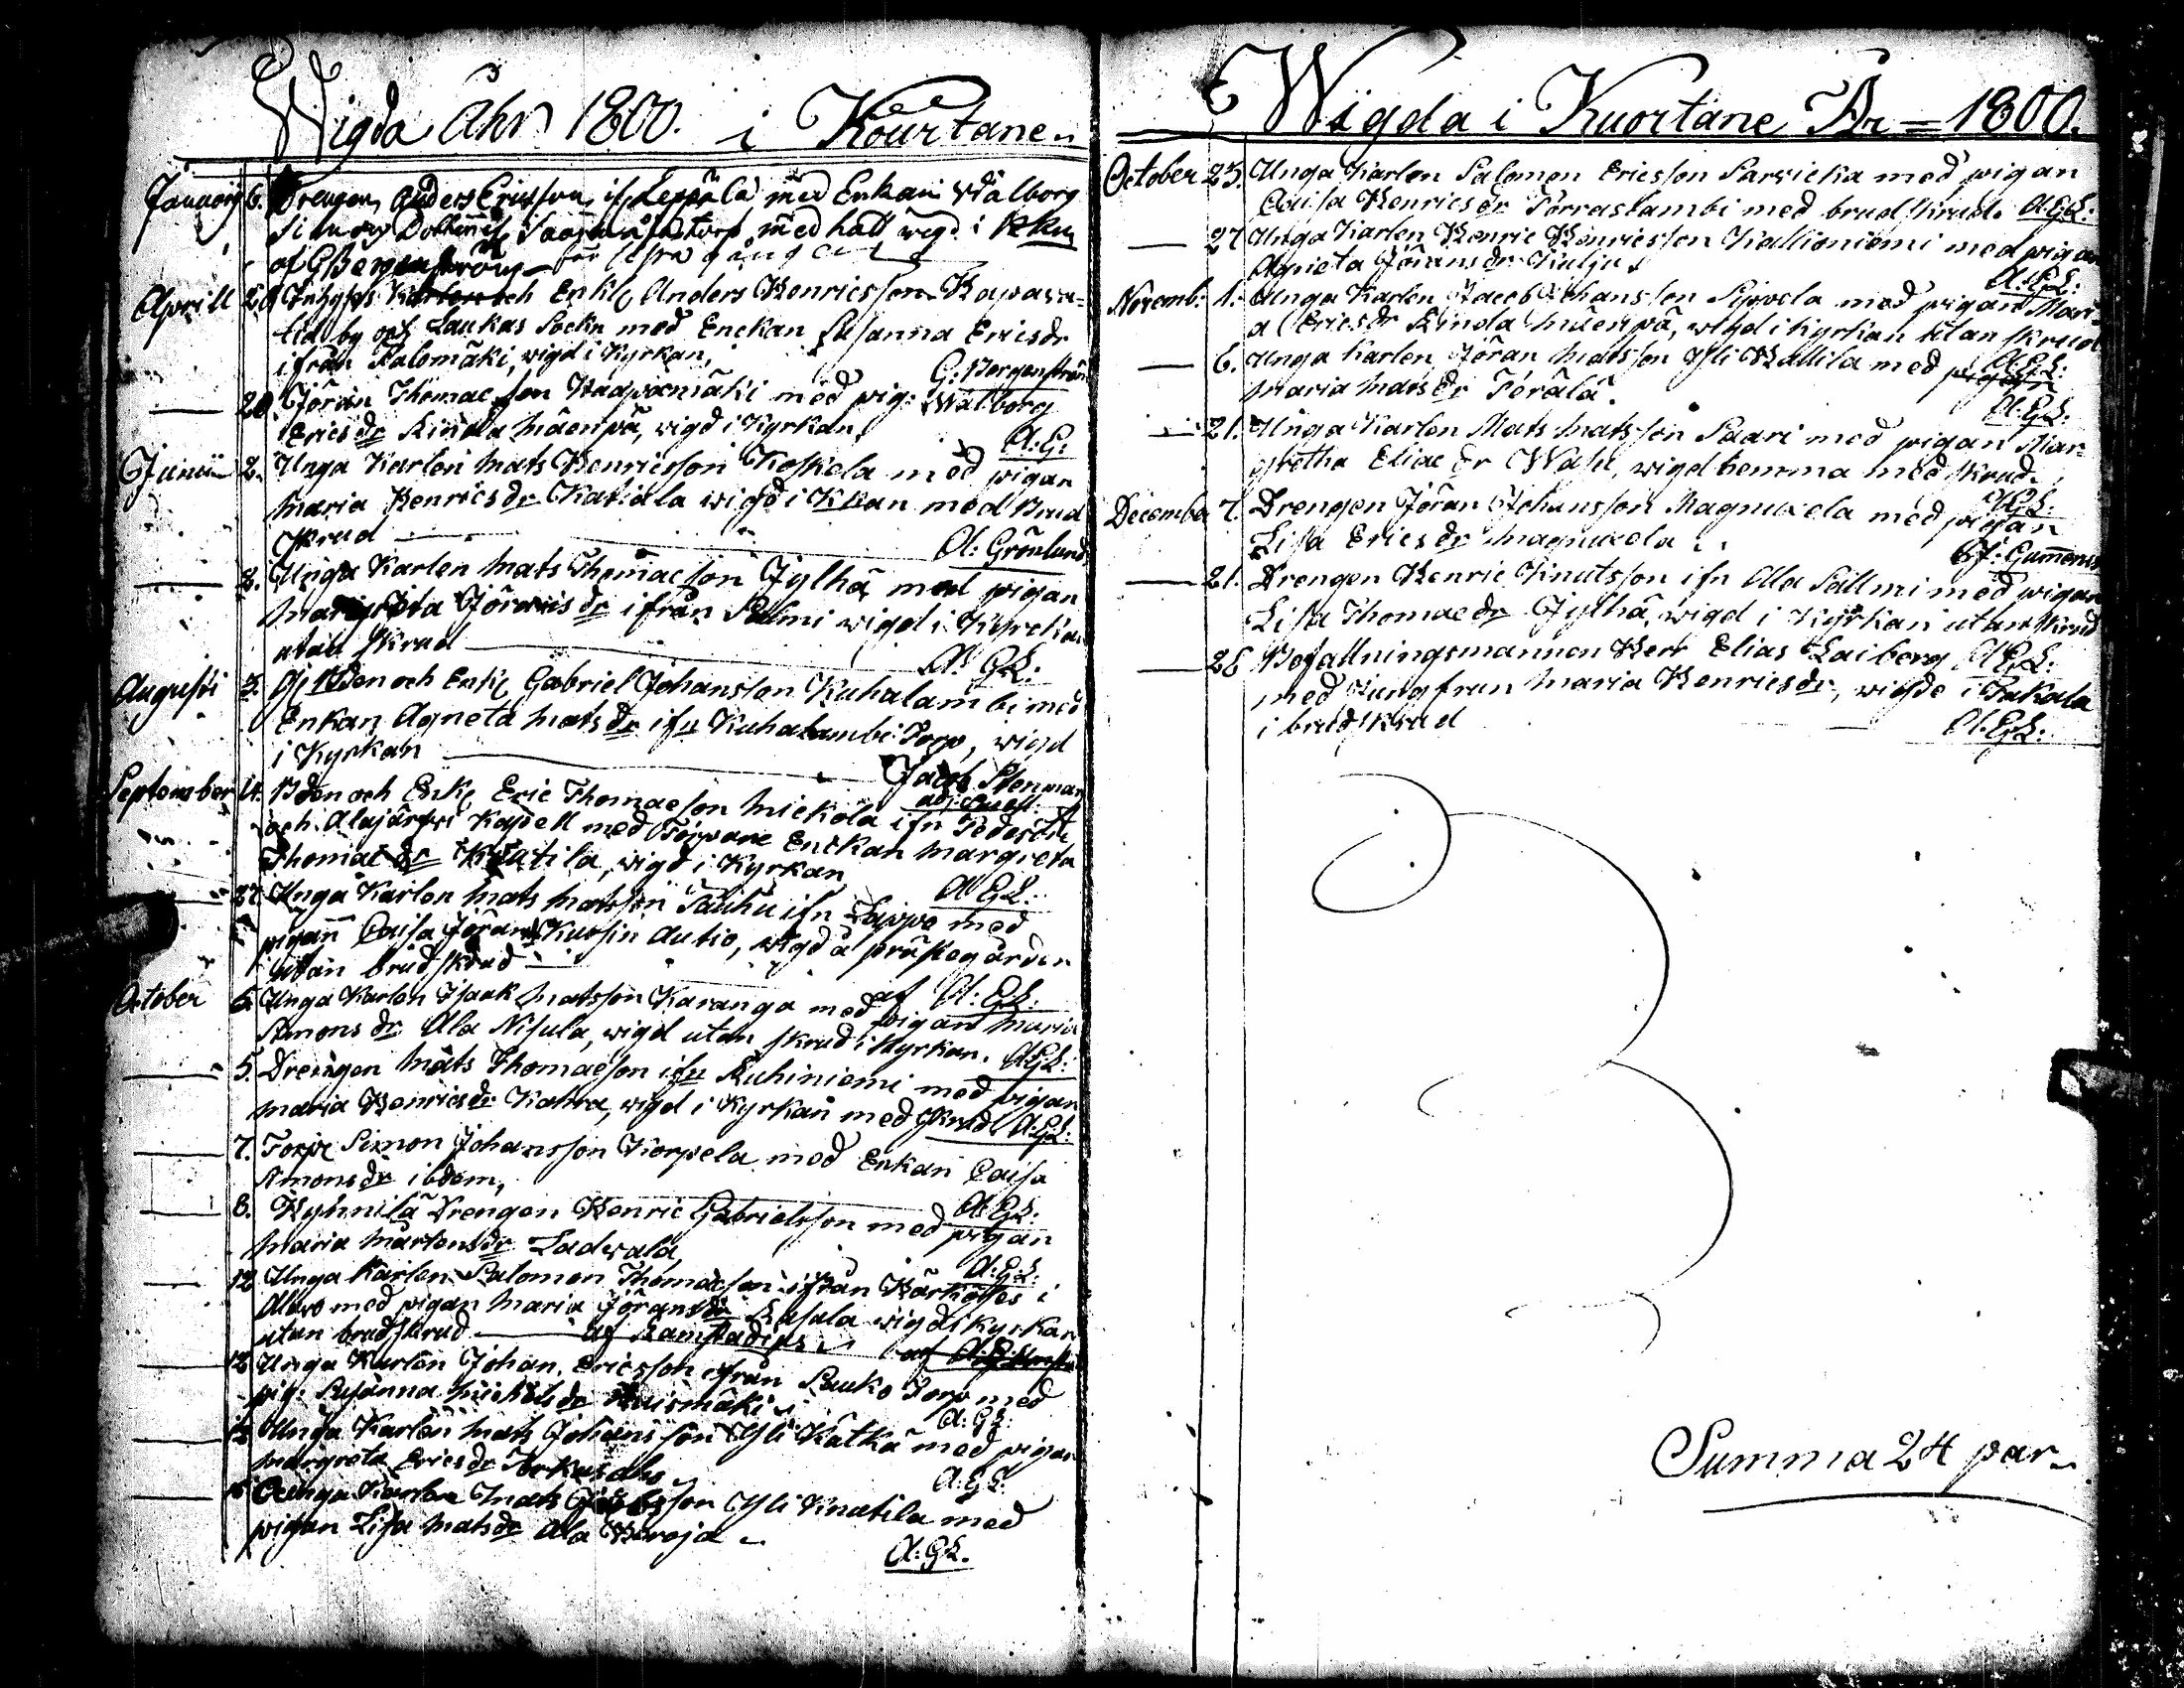 Wigda Åhr 1800. i Kourtane
Januarij 6. Drengen Anders Ericsson if. Leppälä med Enkan Walborg
Simons Dotter med hatt wigd i
af G Bergenström
Aprill och Enkl. Anders Henricsson Kapara-
by och Laukas Sockn med Enckan Susanna Ericsdr
ifrån Salomäki, wigd i Kyrkan,
G: Bergenström
20. Jöran Thomaeson Haapamäki med pig: Walborg
Ericsdr Rinda Mäenpä, wigd i Kyrkan.
A: G:
Junii 2. Unga Karlen Mats Henricsson Koskela med pigan
Maria Henricsdr Katiala wigd i Kkan med Brud
Skrud
A: Grönlund
8. Unga Karlen Mats Thomaeson Jylhä med pigan
Margreta Jöransdr ifrån Salmi wigd i Kyrckan
utan skrud
A: GL:
Augusti 3. Bden och Enkl. Gabriel Johansson Kuhalambi med
Enkan Agneta Matsdr ifn Kuhalambi Torp, wigd
i Kyrkan
Jacob Stenman
adj:
September 14. Bden och Enkl. Eric Thomaeson Mickola ifn Pedersöre
och Alajärfwi Kapell med Torpare Enckan Margreta
Thomaedr Knutila, wigd i Kyrkan
A GL:
27. Unga Karlen Mats Matsson Sauhu ifn Lappo med
pigan Caisa Jörans Kuosin Autio, wigd å prästegården
utan brudskrud
af A: GL:
October 5. Unga Karlen Isaak Matsson Karanga med pigan Maria
Simonsdr Ala Nisula, wigd utan skrud i Kyrkan. A:GL:
5. Drengen Mats Thomaeson ifn Ruhiniemi med pigan
Maria Henricsdr Kahra, wigd i Kyrkan med skrud A:GL:
7. Torp: Simon Johansson Korpela med Enkan Caisa
Simonsdr ibdem,
A: GL:
8. Kyhnilä Drengen Henric Gabrielsson med pigan
Maria Mårtensdr Ladwala
A: GL:
12 Unga Karlen Salomon Thomaeson ifrån Härköjes i
Alavo med pigan Maria Jöransdr Rasala wigd i kyrkan
utan brudskrud
12 Unga Karlen Johan Ericsson ifrån Rauko Torp med
pig: Susanna Michelsdr Ruismäki
A: GL:
12 Unga Karlen Mats Johansson Yli Kätkä med pigan
Margreta Ericsdr
A: GL:
Unga Karlen Mats Jacobsson Yli Knutila med
pigan Lisa Matsdr Ala Heroja
A: GL.
Wigda i Kuortane År = 1800.
October 25. Unga Karlen Salomon Ericsson Sarvicka med pigan
Caisa Henricsdr Porraslambi med brudskrud. A:GL:
27 Unga Karlen Henric Henricsson Kallioniemi med pigan
Agneta Jöransdr Kulju
A:GL:
Novemb: 1. Unga Karlen Jacob Johansson Sippola med pigan Mari-
a Ericsdr Rinda Mäenpä, wigd i Kyrkan utan skrud
A:GL:
6. Unga Karlen Jöran Matsson Yli Wallila med pigan
Maria Matsdr Perälä.
A: GL:
21. Unga Karlen Mats Matsson Saari med pigan Mar
gretha Eliaedr Wasu, wigd hemma med skrud.
A:GL:
December 7. Drengen Jöran Johansson Magnuxela med pigan
Lisa Ericsdr Magnuxela
21. Drengen Henric Knutsson ifn Ala Sallmi med pigan
Lisa Thomaedr Jylhä, wigd i Kyrkan utan skrud
A GL:
28 Befallningsmannen Herr Elias Laiberg
med Jungfrun Maria Henricsdr, wigde i Inkala
i brudskrud
A. GL:
Summa 24 par